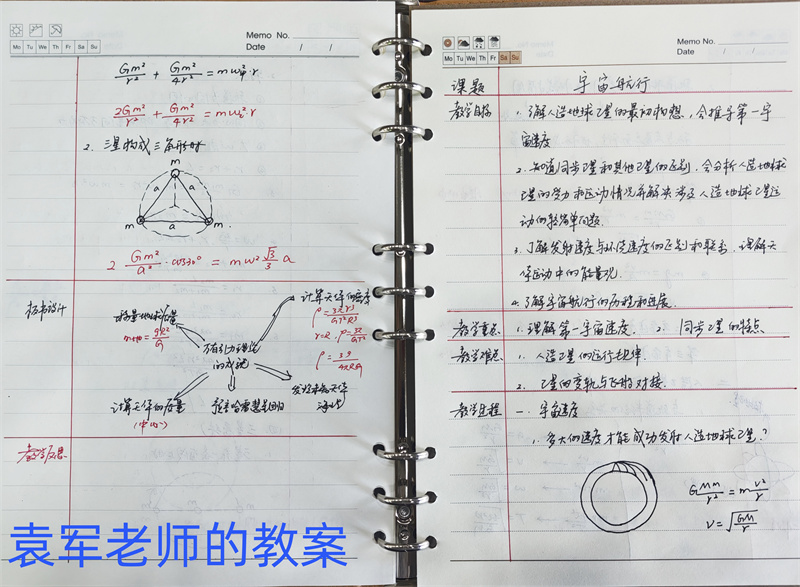 Memo No.
Mo Tu We Th Fr Sa Su
Date / /
Gm²/r² + Gm²/4r² = mω₁²·r
2Gm²/r² + Gm²/4r² = mω₂²·r
2. 三星构成三角形时
m
a a
m a m
2 Gm²/a² · cos30° = mω² √3/3 a
板书设计
称量地球质量
m地 = gR²/G
计算天体的密度
ρ = 3πr³/GT²R³
r=R ρ=3π/GT²
ρ = 3g/4πRG
万有引力理论
的成就
发现未知天体
海王
计算天体的质量
(中心)
预言哈雷彗星回归
教学反思
袁军老师的教案
Memo No.
Mo Tu We Th Fr Sa Su
Date / /
课题 宇宙航行
教学目标 1. 了解人造地球卫星的最初构想，会推导第一宇
宙速度
2. 知道同步卫星和其他卫星的区别，会分析人造地球
卫星的受力和运动情况并解决涉及人造地球卫星运
动的较简单问题.
3. 了解发射速度与环绕速度的区别和联系，理解天
体运动中的能量观.
4. 了解宇宙航行的历程和进展.
教学重点 1. 理解第一宇宙速度. 2. 同步卫星的特点
教学难点 1. 人造卫星的运行规律.
2. 卫星的变轨与飞船对接.
教学过程 一. 宇宙速度
1. 多大的速度才能成功发射人造地球卫星？
GMm/r² = m v²/r
v = √GM/r